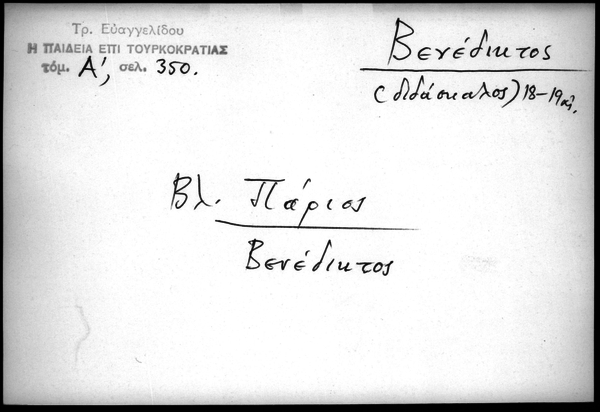 Τρ. Εὐαγγελίδου
Η ΠΑΙΔΕΙΑ ΕΠΙ ΤΟΥΡΚΟΚΡΑΤΙΑΣ
τόμ. Α', σελ. 350.
Βενέδικτος
(διδάσκαλος) 18-19 αἰ.
Βλ. Πάριος
Βενέδικτος